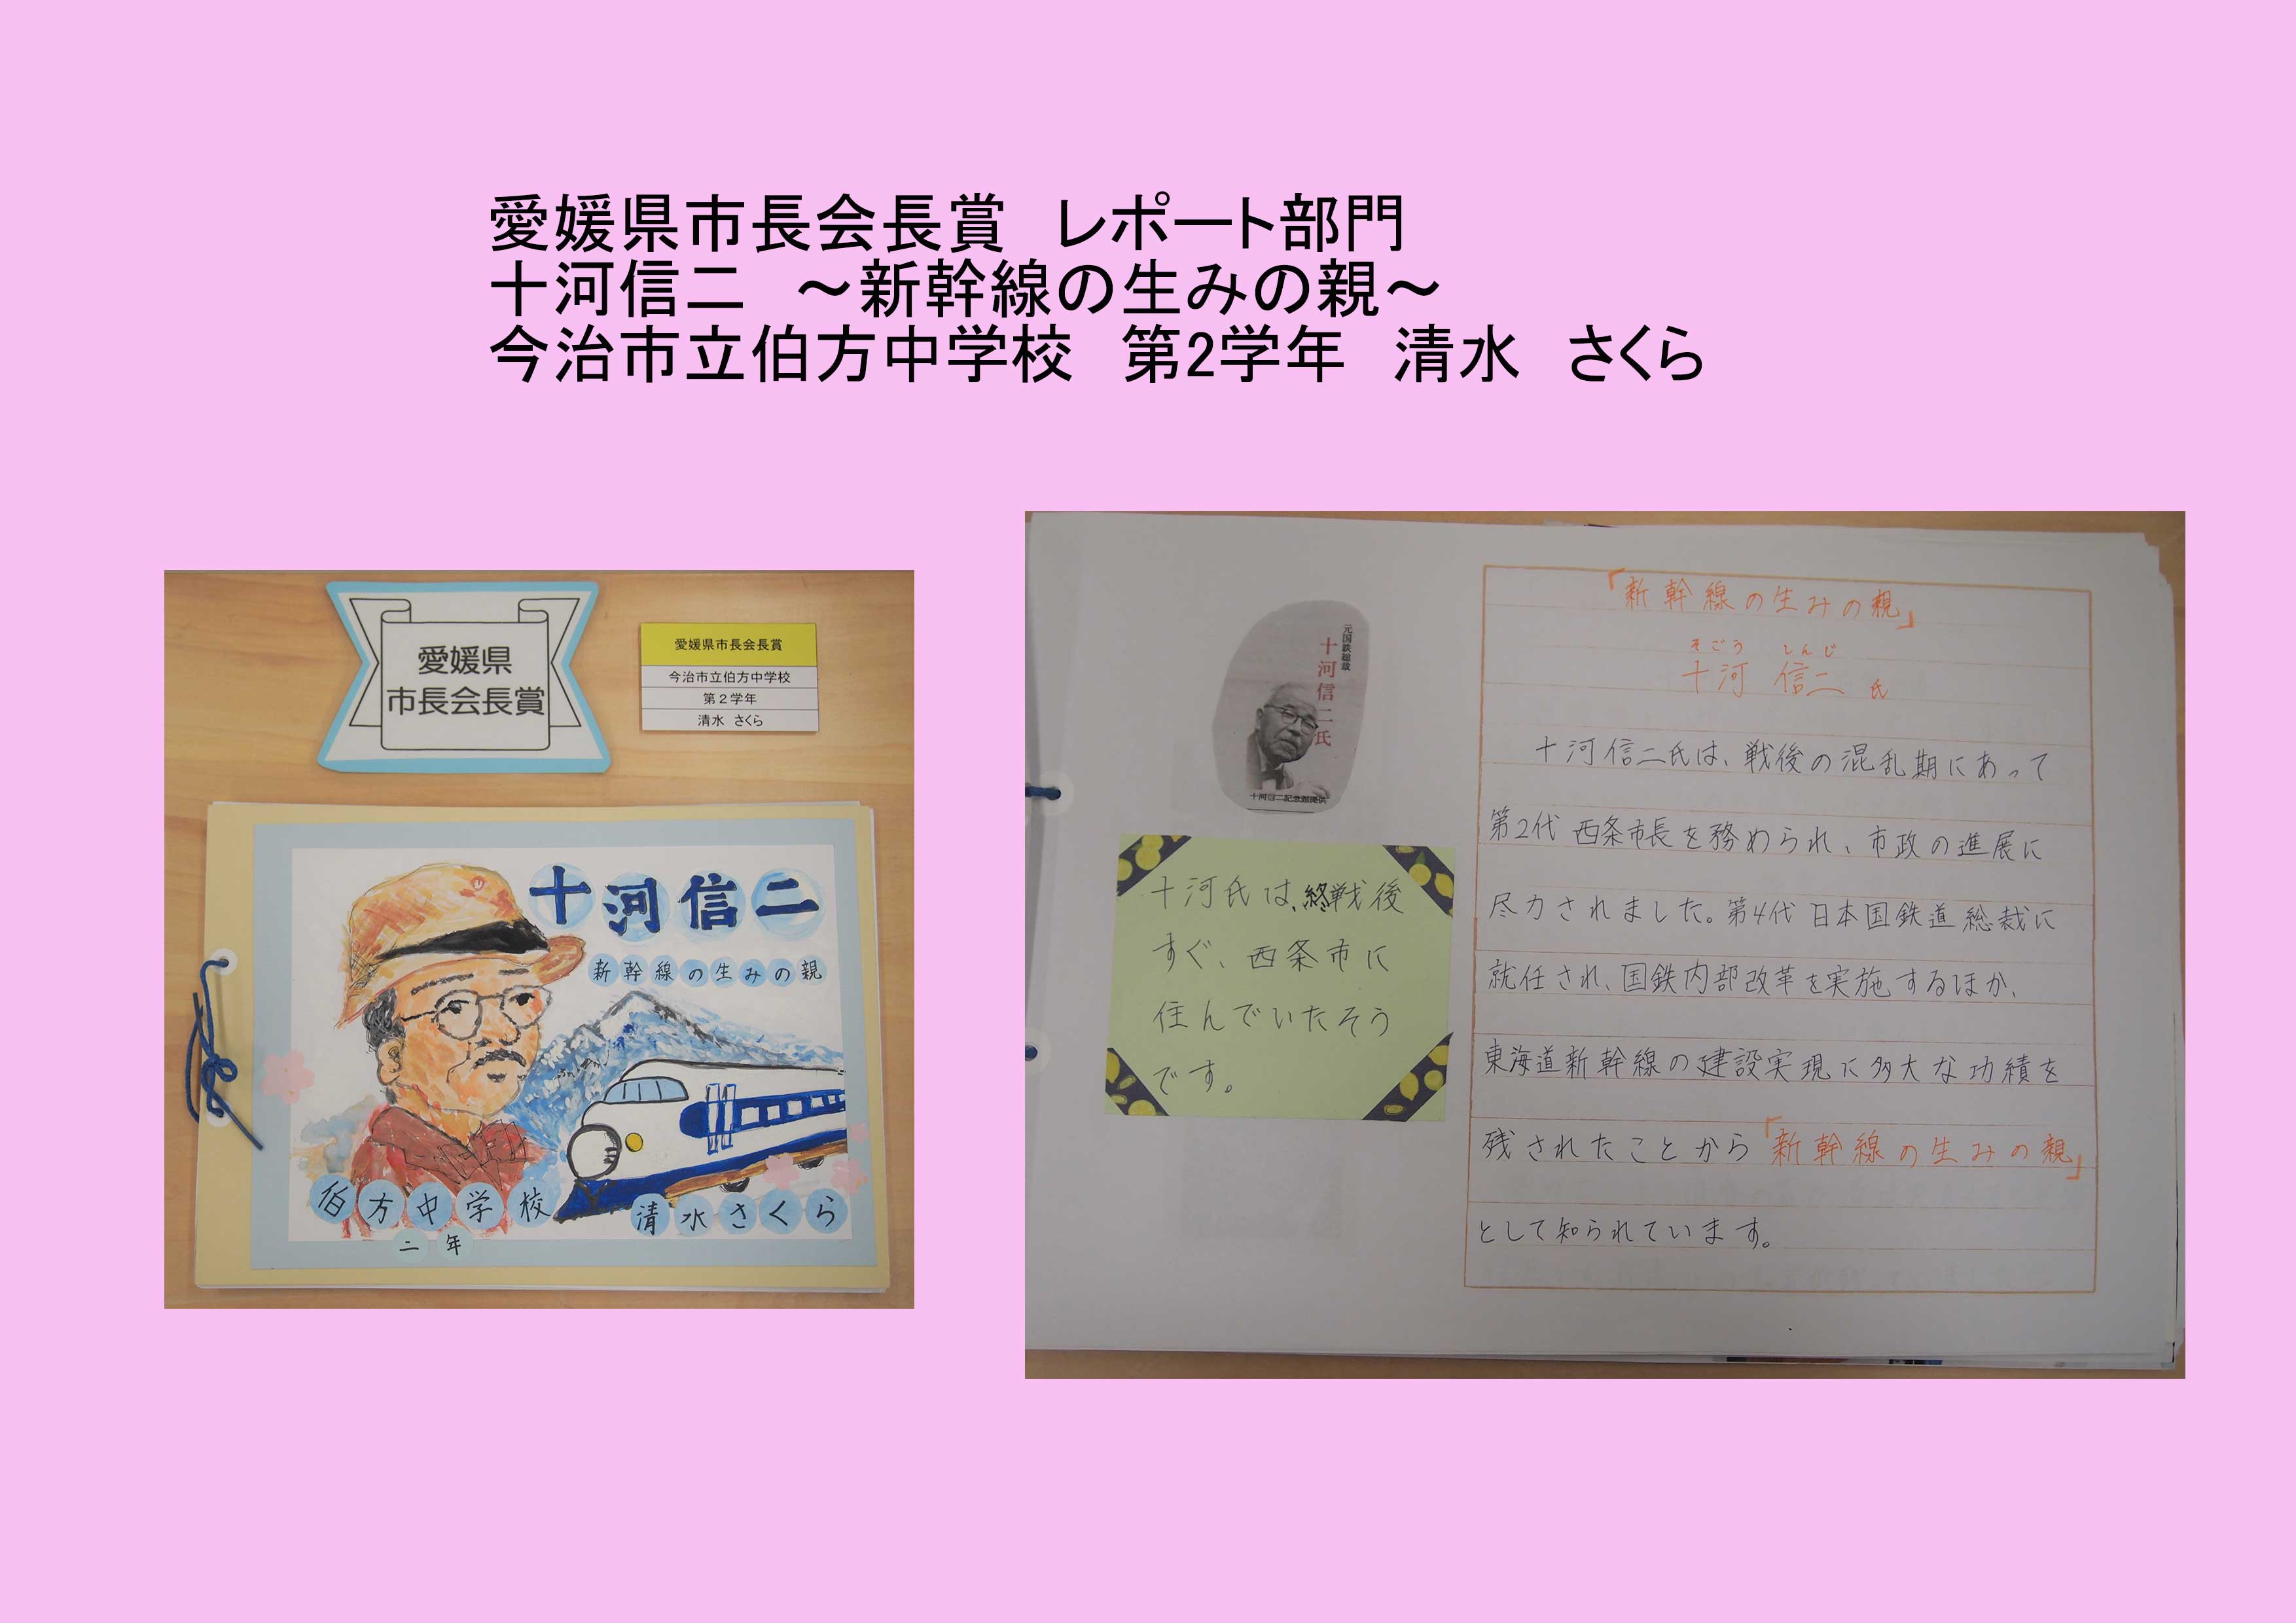 愛媛県市長会長賞　レポート部門
十河信二　～新幹線の生みの親～
今治市立伯方中学校　第2学年　清水　さくら
愛媛県
市長会長賞
愛媛県市長会長賞
今治市立伯方中学校
第２学年
清水　さくら
十河信二
新幹線の生みの親
伯方中学校
二年
清水さくら
元国鉄総裁
十河信二氏
十河信二記念館提供
十河氏は、終戦後
すぐ、西条市に
住んでいたそう
です。
「新幹線の生みの親」
そごう　しんじ
十河　信二　氏
十河信二氏は、戦後の混乱期にあって
第2代 西条市長を務められ、市政の進展に
尽力されました。第4代 日本国鉄道総裁に
就任され、国鉄内部改革を実施するほか、
東海道新幹線の建設実現に多大な功績を
残されたことから「新幹線の生みの親」
として知られています。